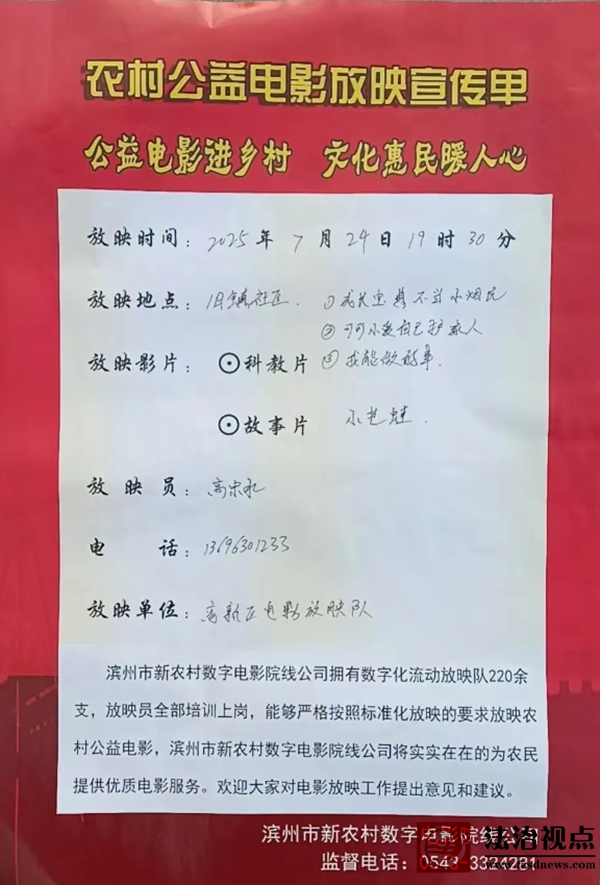 农村公益电影放映宣传单
公益电影进乡村 文化惠民暖人心
放映时间：2025年7月24日19时30分
放映地点：旧镇社区 ①成长宝典不当小烟民
②可可小爱自己护家人
放映影片：⊙科教片 ③我能做好事.
⊙故事片 小老娃.
放映员：高
电话：13696301233
放映单位：高新区电影放映队
滨州市新农村数字电影院线公司拥有数字化流动放映队220余
支，放映员全部培训上岗，能够严格按照标准化放映的要求放映农
村公益电影，滨州市新农村数字电影院线公司将实实在在的为农民
提供优质电影服务。欢迎大家对电影放映工作提出意见和建议。
滨州市新农村数字电影院线公司
监督电话：0543-3324281
法治视点